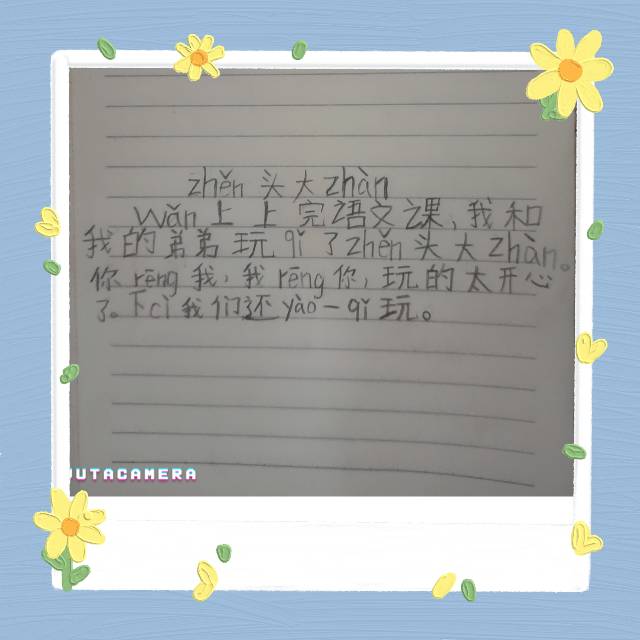 zhěn 头大 zhàn
wǎn 上上完语文课、我和
我的弟弟玩 qǐ 了 zhěn 头大 zhàn。
你 rēng 我，我 rēng 你，玩的太开心
了。下 cì 我们还 yào 一 qǐ 玩。
UTACAMERA